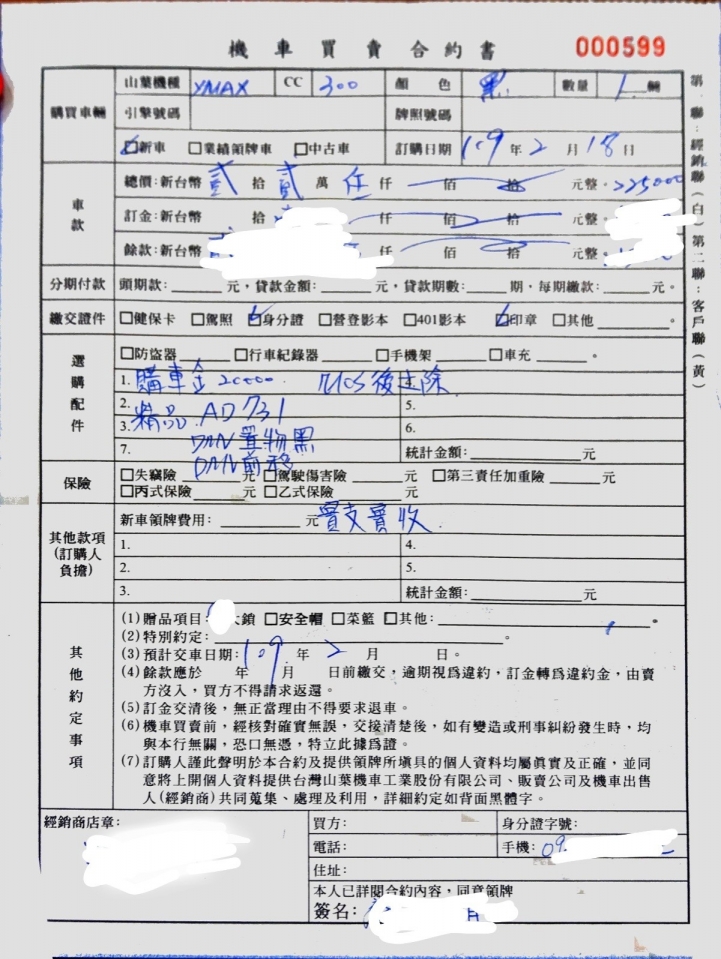 機車買賣合約書 000599
購買車輛
山葉機種 XMAX CC 300 顏色 黑 數量 1 輛
引擎號碼 牌照號碼
☑新車 □業績領牌車 □中古車 訂購日期 109年2月18日
車款
總價:新台幣 貳拾貳萬伍仟 佰 拾 元整。225000
訂金:新台幣 拾 仟 佰 拾 元整。
餘款:新台幣 仟 佰 拾 元整。
分期付款 頭期款: 元,貸款金額: 元,貸款期數: 期,每期繳款: 元。
繳交證件 □健保卡 □駕照 ☑身分證 □營登影本 □401影本 ☑印章 □其他 。
選購配件
□防盜器 □行車紀錄器 □手機架 □車充 。
1. 購車金20000. 後 除 4.
2. 5.
3. 精品 AD731 6.
7. DMV置物黑 統計金額: 元
DMV前移
保險
□失竊險 元 □駕駛傷害險 元 □第三責任加重險 元
□丙式保險 元 □乙式保險 元
其他款項(訂購人負擔)
新車領牌費用: 元 實支實收.
1. 4.
2. 5.
3. 統計金額: 元
其他約定事項
(1)贈品項目: 大鎖 □安全帽 □菜籃 □其他: 。
(2)特別約定: 。
(3)預計交車日期:109年2月 日。
(4)餘款應於 年 月 日前繳交,逾期視爲違約,訂金轉爲違約金,由賣
方沒入,買方不得請求返還。
(5)訂金交清後,無正當理由不得要求退車。
(6)機車買賣前,經核對確實無誤,交接清楚後,如有變造或刑事糾紛發生時,均
與本行無關,恐口無憑,特立此據爲證。
(7)訂購人謹此聲明於本合約及提供領牌所填具的個人資料均屬眞實及正確,並同
意將上開個人資料提供台灣山葉機車工業股份有限公司、販賣公司及機車出售
人(經銷商)共同蒐集、處理及利用,詳細約定如背面黑體字。
經銷商店章:
買方: 身分證字號:
電話: 手機: 09
住址:
本人已詳閱合約內容,同意領牌
簽名:
第一聯:經銷聯(白)第二聯:客戶聯(黃)